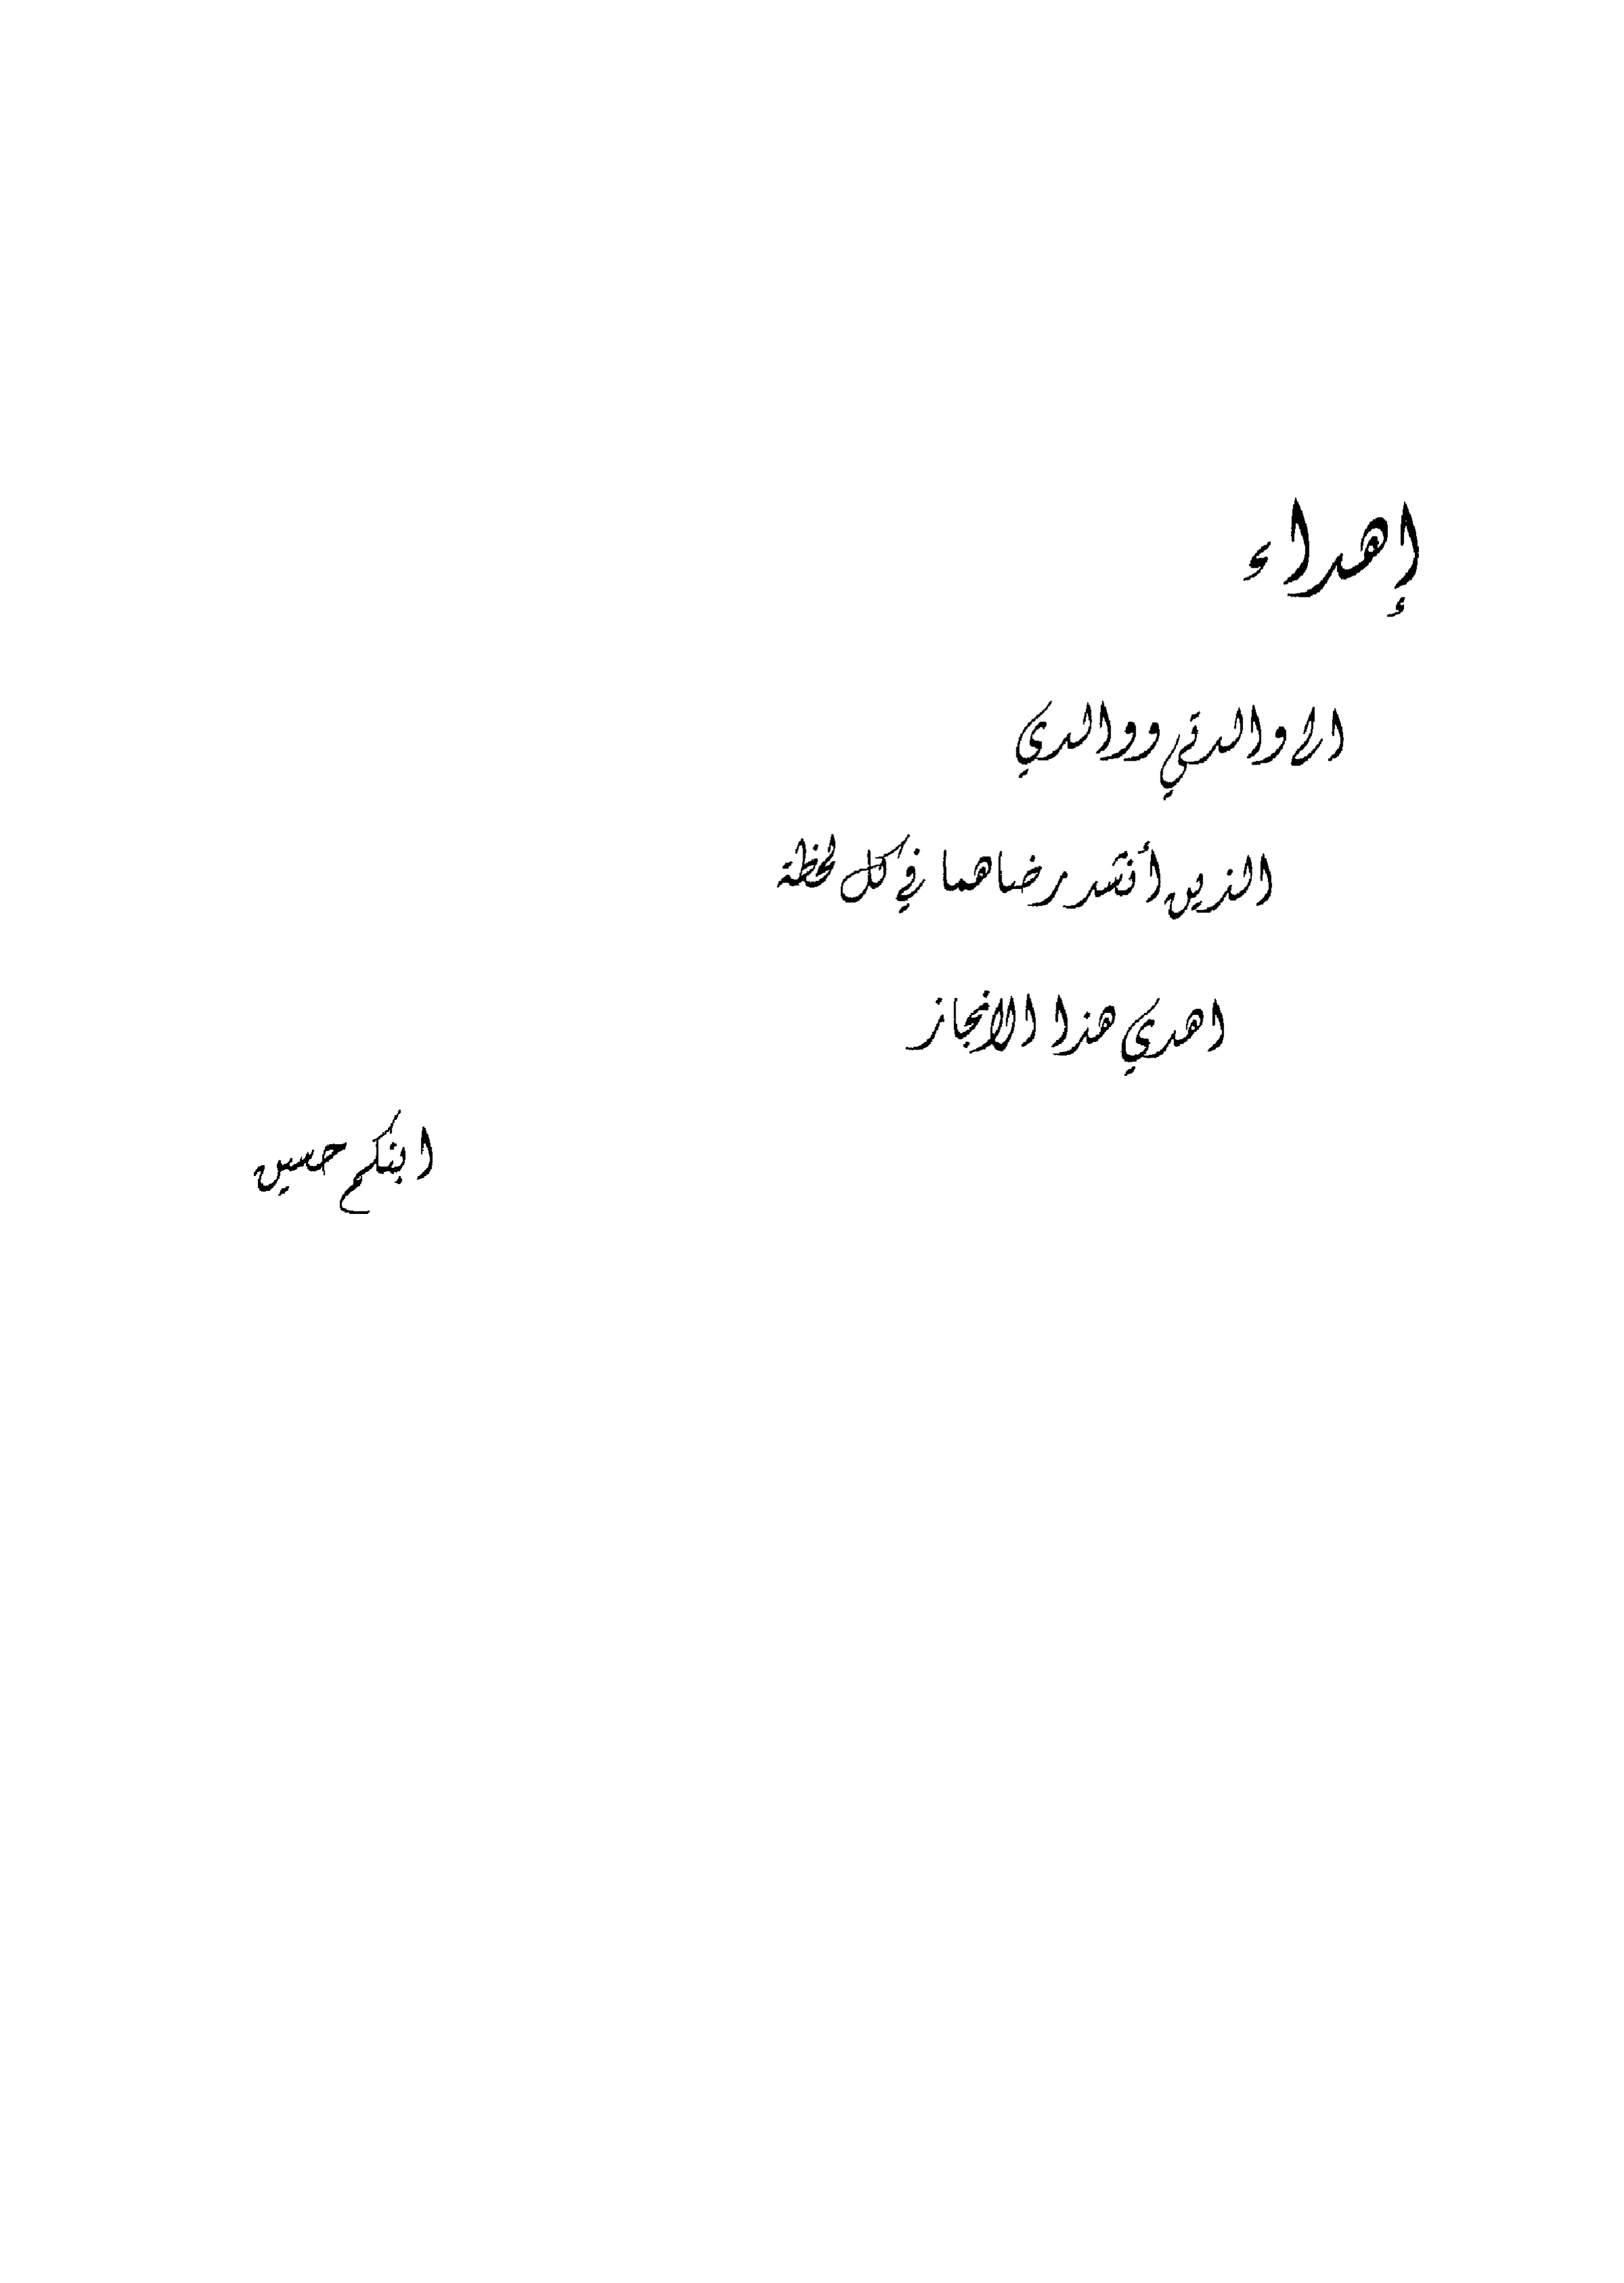 إهداء
الى والدتي ووالدي
الذين أنشد رضاهما في كل لحظة
اهدي هذا الانجاز
ابنكم حسين